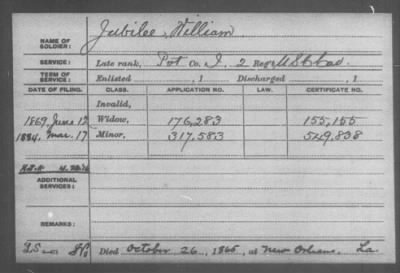 NAME OF SOLDIER: Jubilee, William
SERVICE: Late rank, Pvt Co. I, 2 Reg't U.S.C. Cav.
TERM OF SERVICE: Enlisted , 1 Discharged , 1
DATE OF FILING. CLASS. APPLICATION NO. LAW. CERTIFICATE NO.
Invalid,
1869, June 12 Widow, 176,283 155,155
1884, Mar. 17 Minor, 317,583 549,838
ADDITIONAL SERVICES:
REMARKS:
Died October 26, 1865, at New Orleans, La